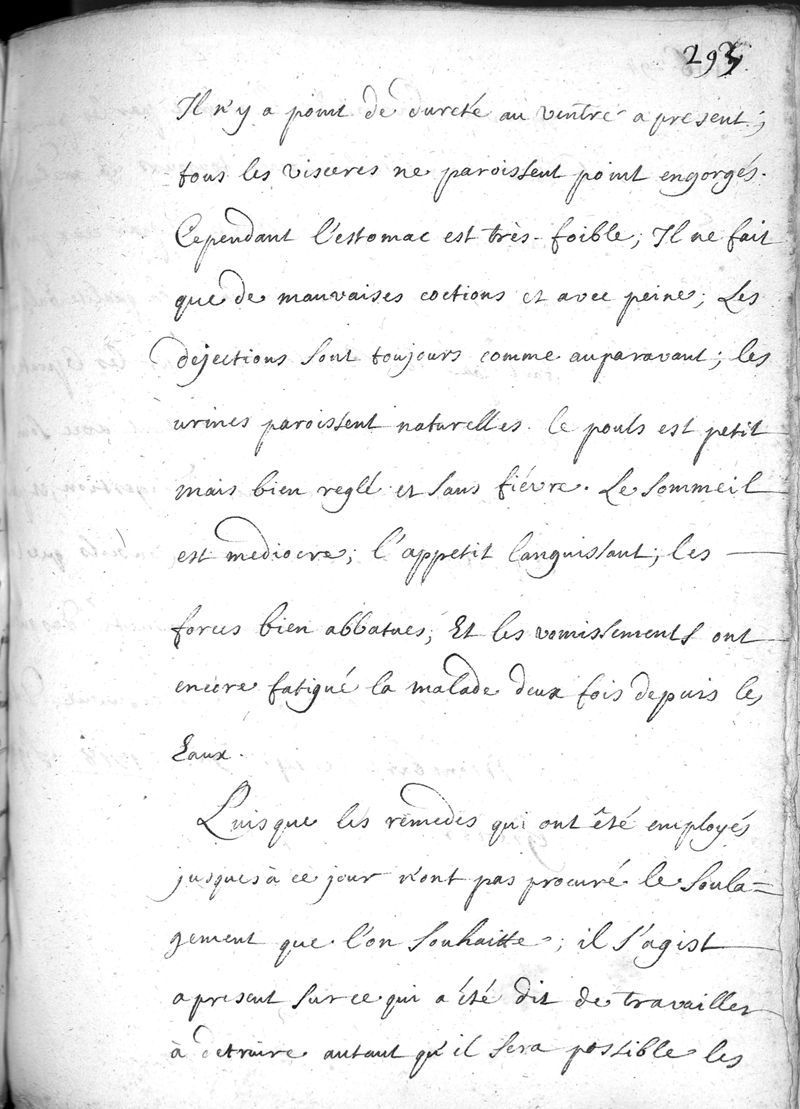 293
Il n'y a point de dureté au ventre a present;
tous les visceres ne paroissent point engorgés.
Cependant l'estomac est très-foible; Il ne fait
que de mauvaises coctions et avec peine; Les
dejections sont toujours comme auparavant; les
urines paroissent naturelles. le pouls est petit
mais bien reglé et sans fiévre. Le sommeil
est mediocre; l'appetit languissant; les
forces bien abbatues; Et les vomissements ont
encore fatigué la malade deux fois depuis les
Eaux.
Puisque les remedes qui ont êté employés
jusques à ce jour n'ont pas procuré le soula=
gement que l'on souhaitte; il s'agist
apresent sur ce qui a été dit de travailler
à detruire autant qu'il sera possible les